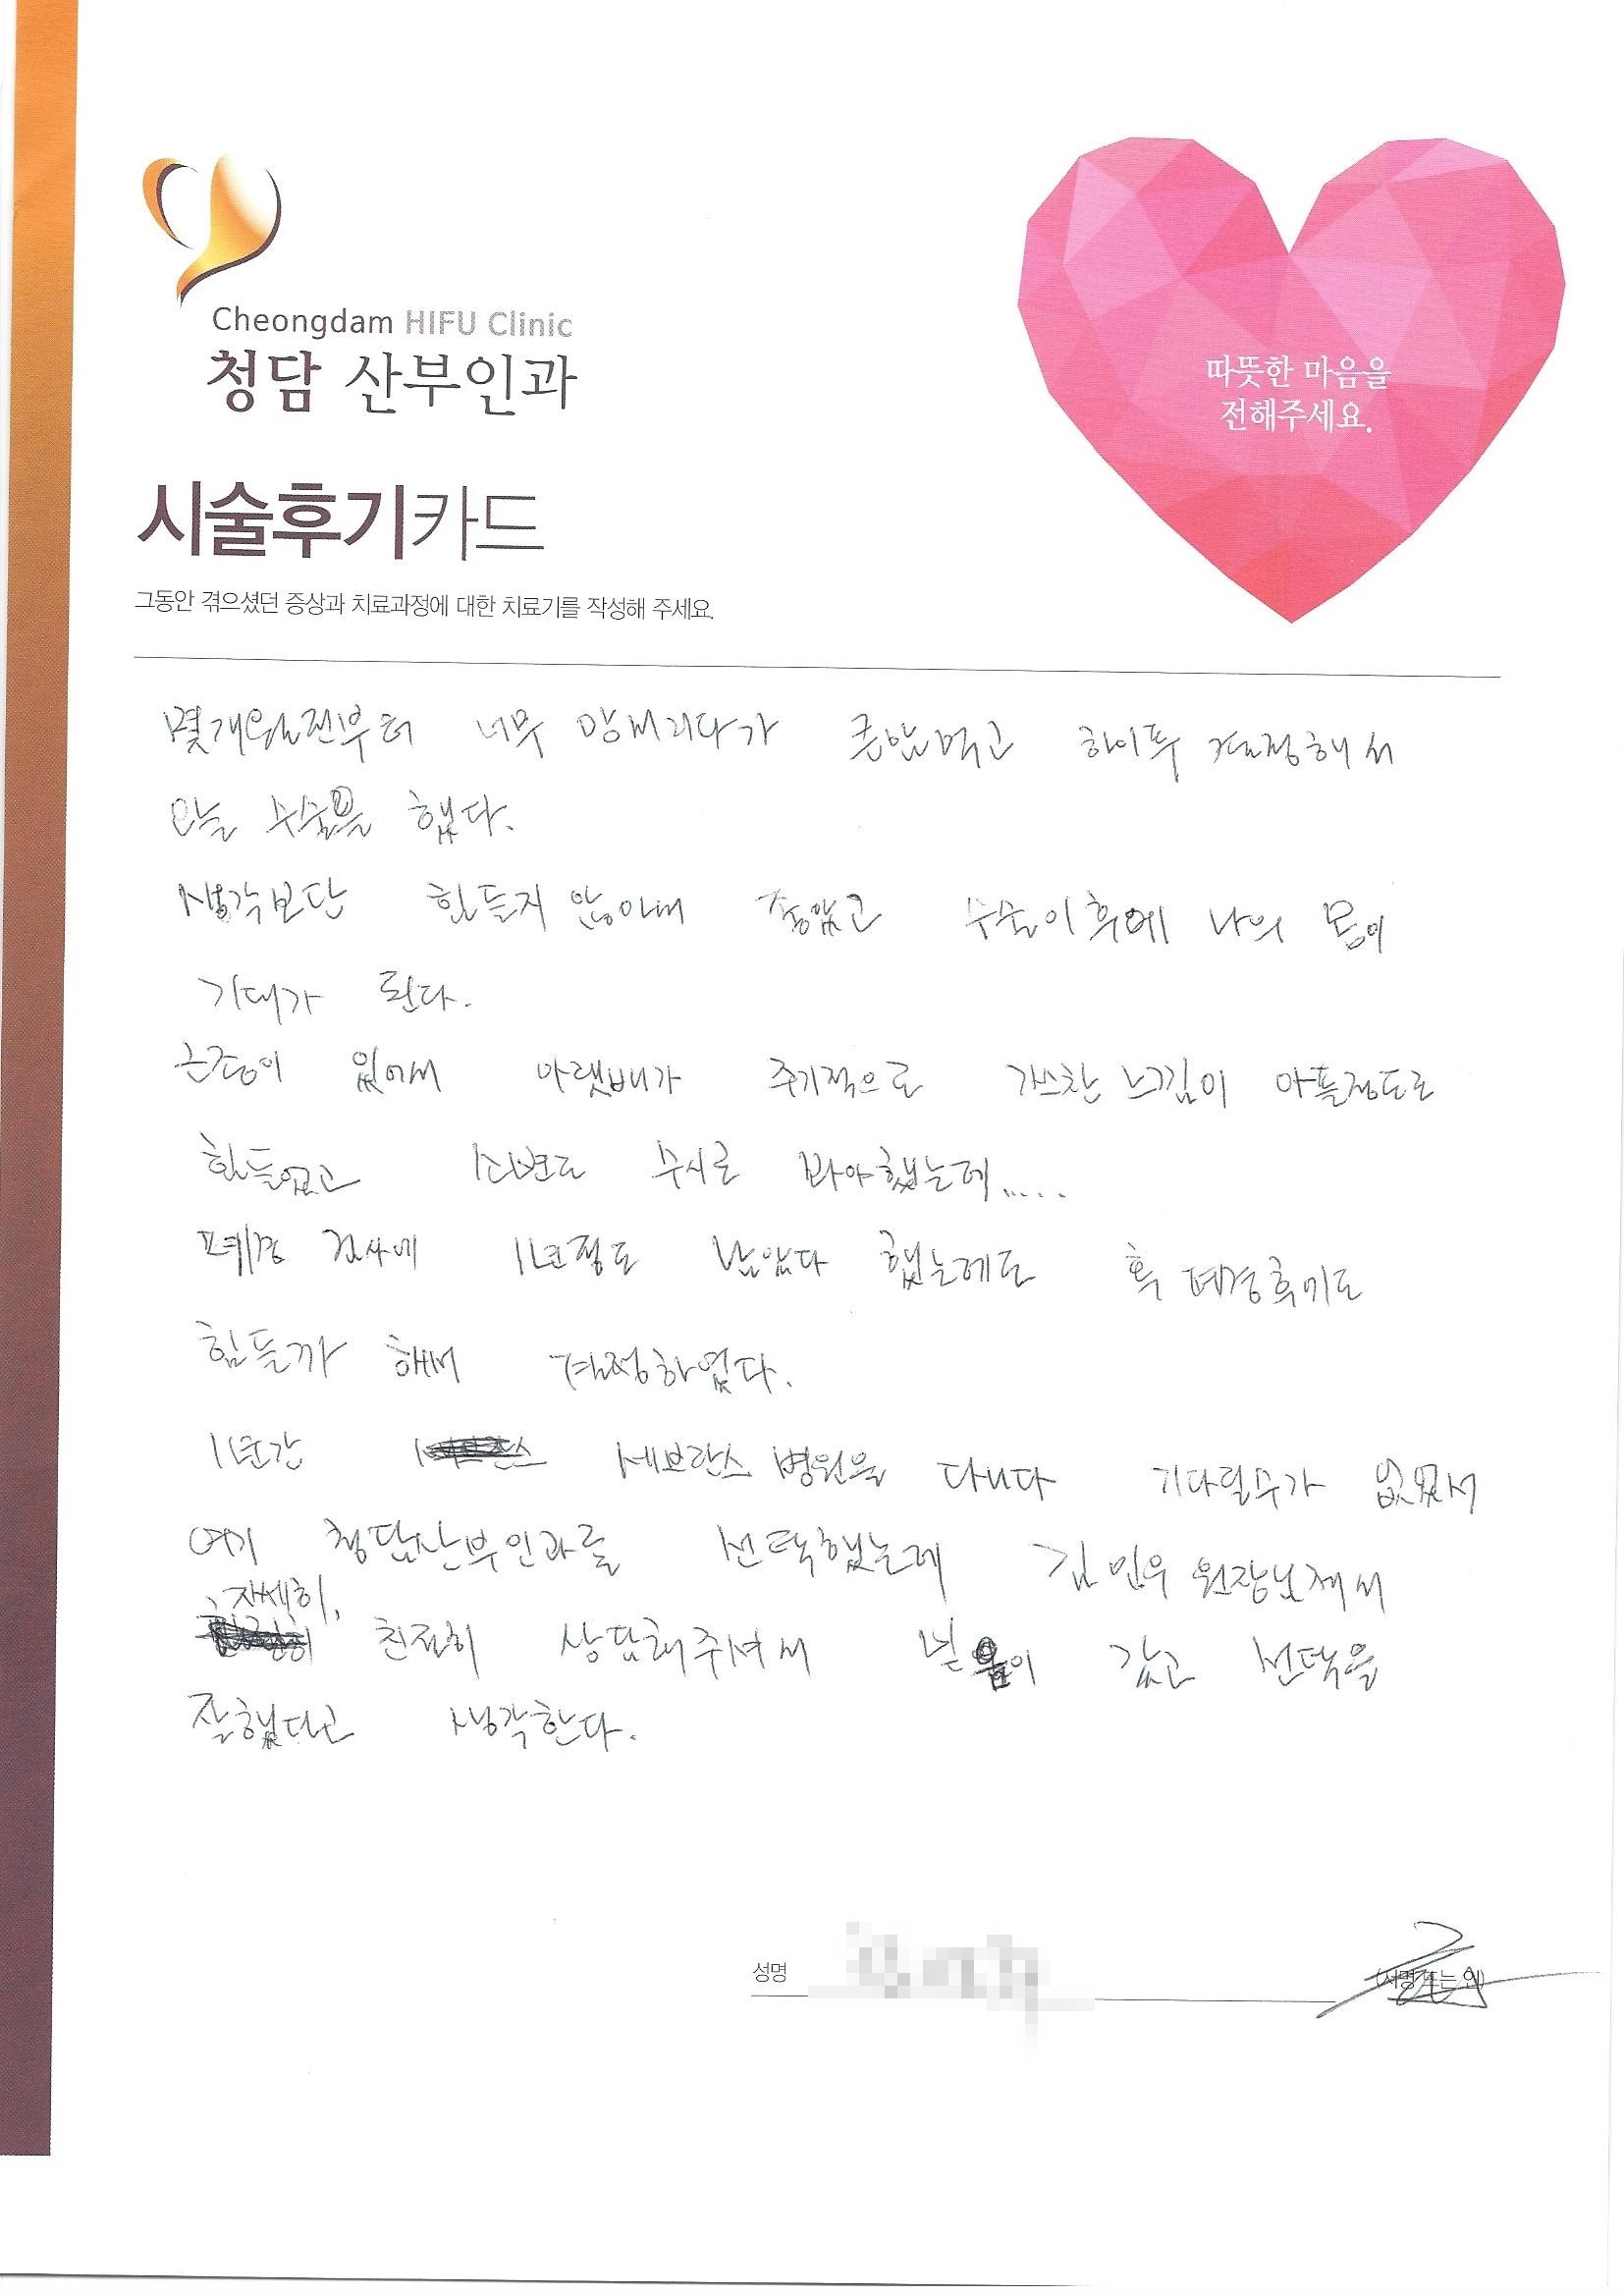 Cheongdam HIFU Clinic
청담 산부인과
따뜻한 마음을
전해주세요.
시술후기카드
그동안 겪으셨던 증상과 치료과정에 대한 치료기를 작성해 주세요.
몇개월전부터 너무 망서리다가 큰맘먹고 하이푸 결정해서
오늘 수술을 했다.
생각보단 힘들지 않아서 좋았고 수술이후에 나의 몸이
기대가 된다.
근종이 있어서 아랫배가 주기적으로 가스찬 느낌이 아플정도로
힘들었고 소변도 수시로 봐야했는데.....
폐경 검사에 1년정도 남았다 했는데도 혹 폐경후에도
힘들까 해서 결정하였다.
1년간 세브란스 병원을 다니다 기다릴수가 없어서
여기 청담산부인과를 선택했는데 김민우 원장님께서
자세히, 친절히 상담해주셔서 믿음이 갔고 선택을
잘했다고 생각한다.
성명 (서명 또는 인)